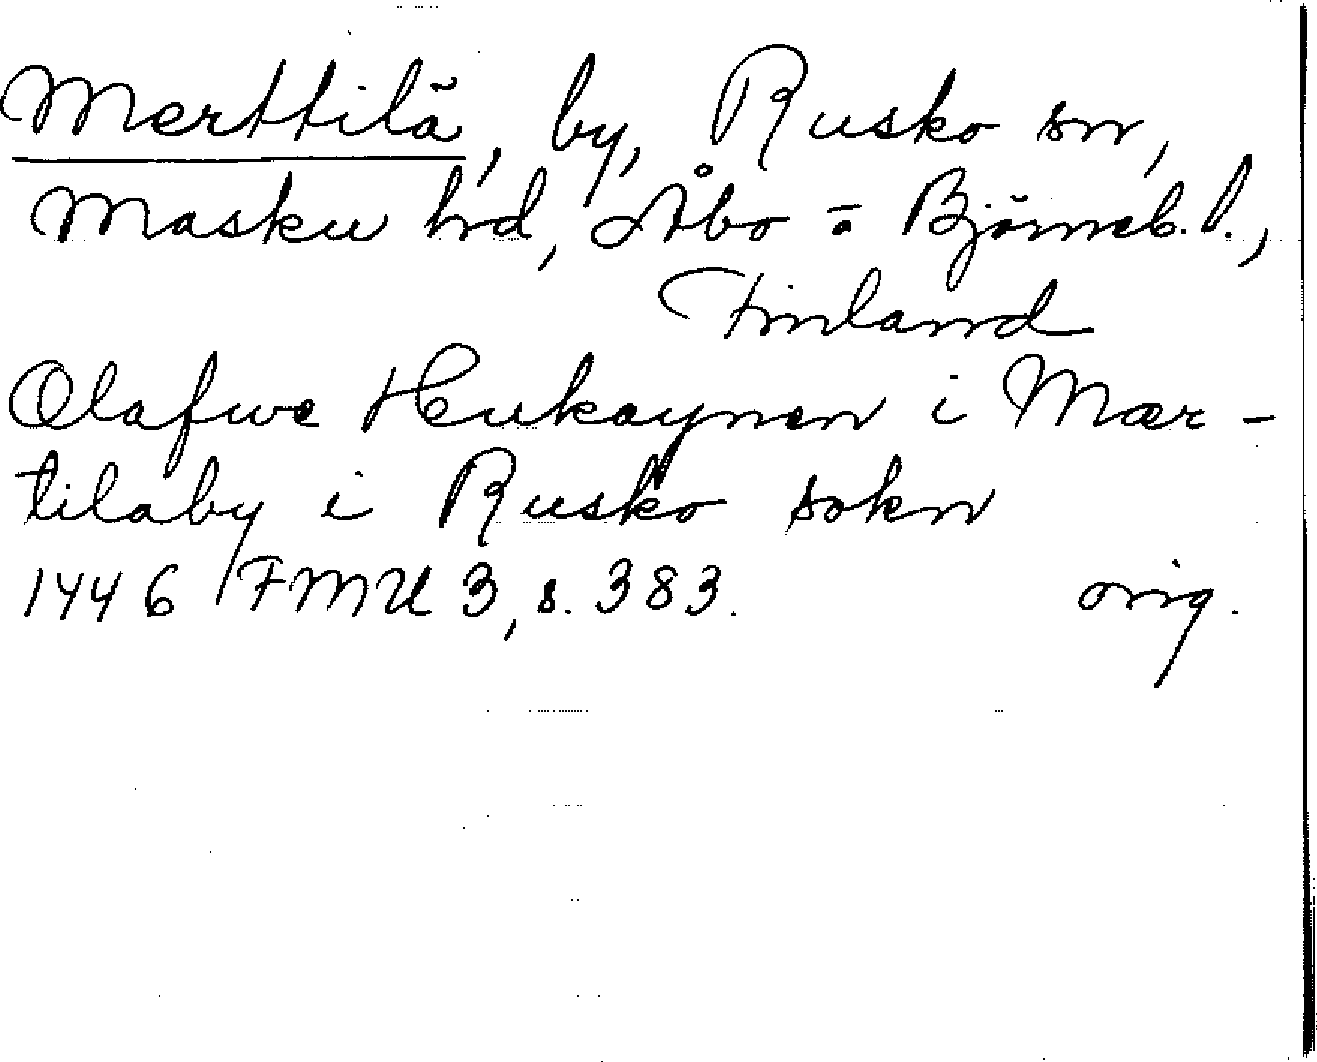 Merttilä, by, Rusko sn,
Masku hd, Åbo - o Björneb. l.,
Finland
Olafwe Heukaynen i Mær-
tilaby i Rusko sokn
1446 FMU 3, s. 383. orig.